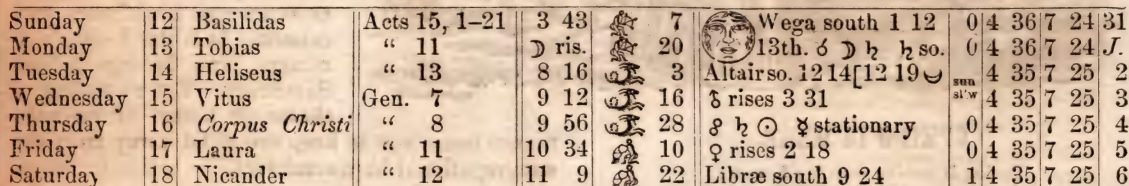 Sunday 12 Basilidas Acts 15, 1–21 3 43 7 Wega south 1 12 0 4 36 7 24 31
Monday 13 Tobias “ 11 ☽ ris. 20 13th. ☌ ☽ ♄ ♄ so. 0 4 36 7 24 J.
Tuesday 14 Heliseus “ 13 8 16 3 Altair so. 12 14 [12 19 sun 4 35 7 25 2
Wednesday 15 Vitus Gen. 7 9 12 16 rises 3 31 sl'w 4 35 7 25 3
Thursday 16 Corpus Christi “ 8 9 56 28 ☍ ♄ ☉ ☿ stationary 0 4 35 7 25 4
Friday 17 Laura “ 11 10 34 10 ♀ rises 2 18 0 4 35 7 25 5
Saturday 18 Nicander “ 12 11 9 22 Libræ south 9 24 1 4 35 7 25 6